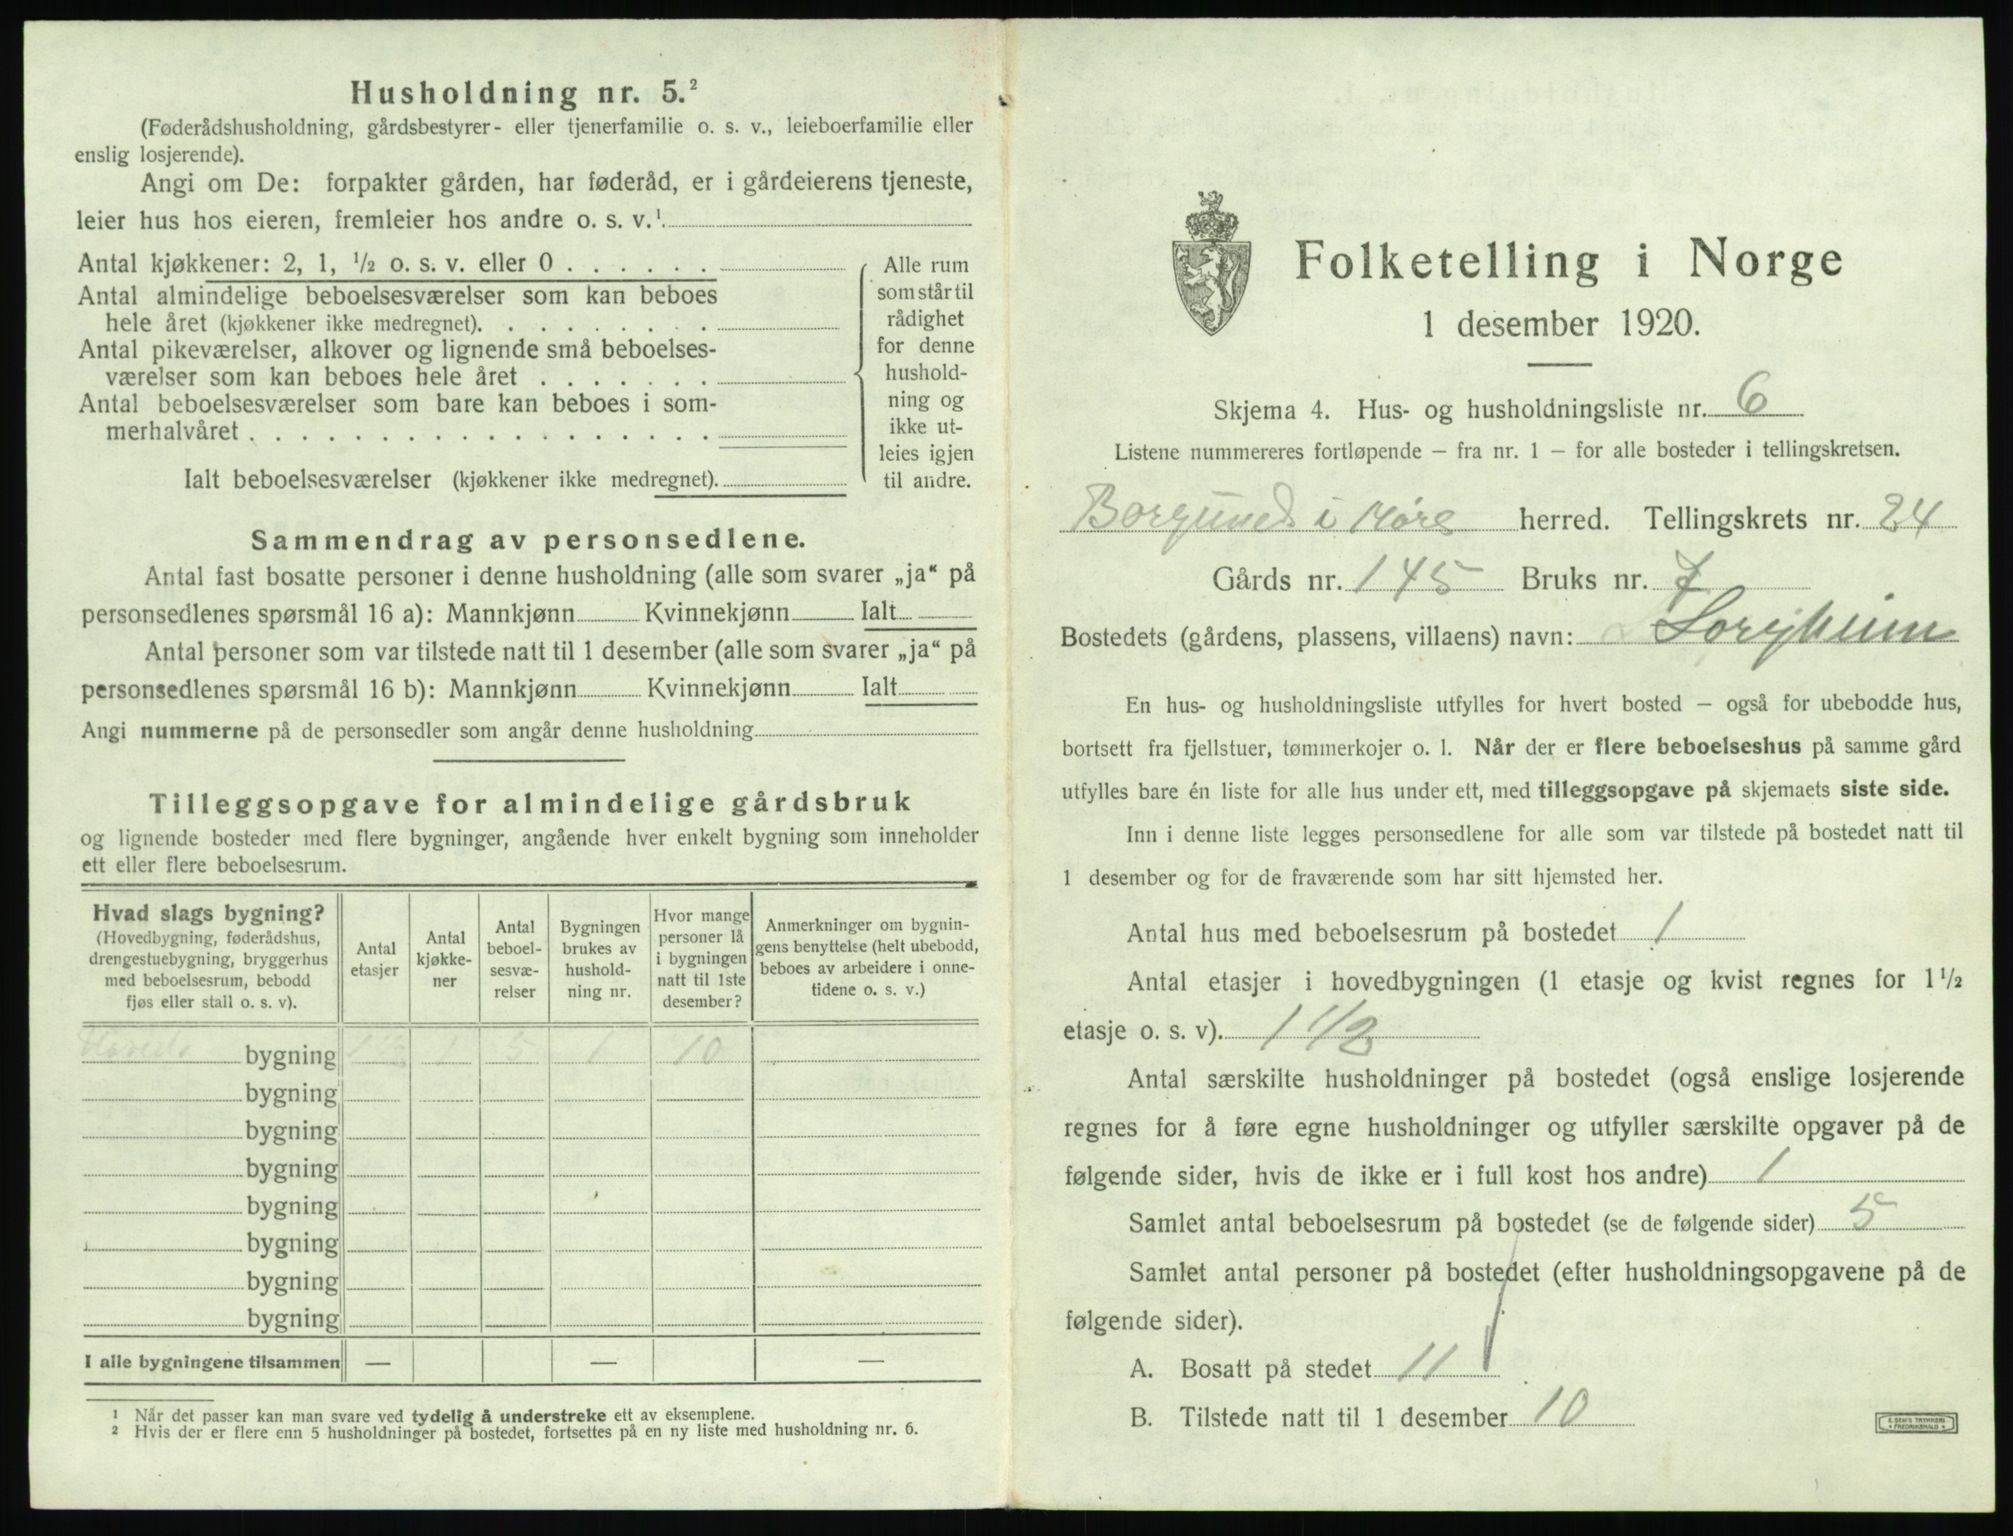 Husholdning nr. 5.²
(Føderådshusholdning, gårdsbestyrer- eller tjenerfamilie o. s. v., leieboerfamilie eller
enslig losjerende).
Angi om De: forpakter gården, har føderåd, er i gårdeierens tjeneste,
leier hus hos eieren, fremleier hos andre o. s. v.¹
Antal kjøkkener: 2, 1, ½ o. s. v. eller 0 . . . . . .
Antal almindelige beboelsesværelser som kan beboes
hele året (kjøkkener ikke medregnet). . . . . . . . .
Antal pikeværelser, alkover og lignende små beboelses-
værelser som kan beboes hele året . . . . . . .
Antal beboelsesværelser som bare kan beboes i som-
merhalvåret . . . . . . . . . . . . . . . . . .
Ialt beboelsesværelser (kjøkkener ikke medregnet).
Alle rum
som står til
rådighet
for denne
hushold-
ning og
ikke ut-
leies igjen
til andre.
Sammendrag av personsedlene.
Antal fast bosatte personer i denne husholdning (alle som svarer „ja“ på
personsedlenes spørsmål 16 a): Mannkjønn Kvinnekjønn Ialt
Antal personer som var tilstede natt til 1 desember (alle som svarer „ja“ på
personsedlenes spørsmål 16 b): Mannkjønn Kvinnekjønn Ialt
Angi nummerne på de personsedler som angår denne husholdning
Tilleggsopgave for almindelige gårdsbruk
og lignende bosteder med flere bygninger, angående hver enkelt bygning som inneholder
ett eller flere beboelsesrum.
Hvad slags bygning?
(Hovedbygning, føderådshus,
drengestuebygning, bryggerhus
med beboelsesrum, bebodd
fjøs eller stall o. s. v).
Antal
etasjer
Antal
kjøkke-
ner
Antal
beboel-
sesvæ-
relser
Bygningen
brukes av
hushold-
ning nr.
Hvor mange
personer lå
i bygningen
natt til 1ste
desember?
Anmerkninger om bygnin-
gens benyttelse (helt ubebodd,
beboes av arbeidere i onne-
tidene o. s. v.)
Hoved bygning 1½ 1 5 1 10
bygning
bygning
bygning
bygning
bygning
bygning
bygning
I alle bygningene tilsammen — — —
¹ Når det passer kan man svare ved tydelig å understreke ett av eksemplene.
² Hvis der er flere enn 5 husholdninger på bostedet, fortsettes på en ny liste med husholdning nr. 6.
Folketelling i Norge
1 desember 1920.
Skjema 4. Hus- og husholdningsliste nr. 6
Listene nummereres fortløpende – fra nr. 1 – for alle bosteder i tellingskretsen.
Borgund i Møre herred. Tellingskrets nr. 24
Gårds nr. 145 Bruks nr. 7
Bostedets (gårdens, plassens, villaens) navn:
En hus- og husholdningsliste utfylles for hvert bosted – også for ubebodde hus,
bortsett fra fjellstuer, tømmerkojer o. l. Når der er flere beboelseshus på samme gård
utfylles bare én liste for alle hus under ett, med tilleggsopgave på skjemaets siste side.
Inn i denne liste legges personsedlene for alle som var tilstede på bostedet natt til
1 desember og for de fraværende som har sitt hjemsted her.
Antal hus med beboelsesrum på bostedet 1
Antal etasjer i hovedbygningen (1 etasje og kvist regnes for 1½
etasje o. s. v). 1 1/2
Antal særskilte husholdninger på bostedet (også enslige losjerende
regnes for å føre egne husholdninger og utfyller særskilte opgaver på de
følgende sider, hvis de ikke er i full kost hos andre) 1
Samlet antal beboelsesrum på bostedet (se de følgende sider) 5
Samlet antal personer på bostedet (efter husholdningsopgavene på de
følgende sider).
A. Bosatt på stedet 11
B. Tilstede natt til 1 desember 10
E. SEM'S TRYKKERI
FREDRIKSHALD